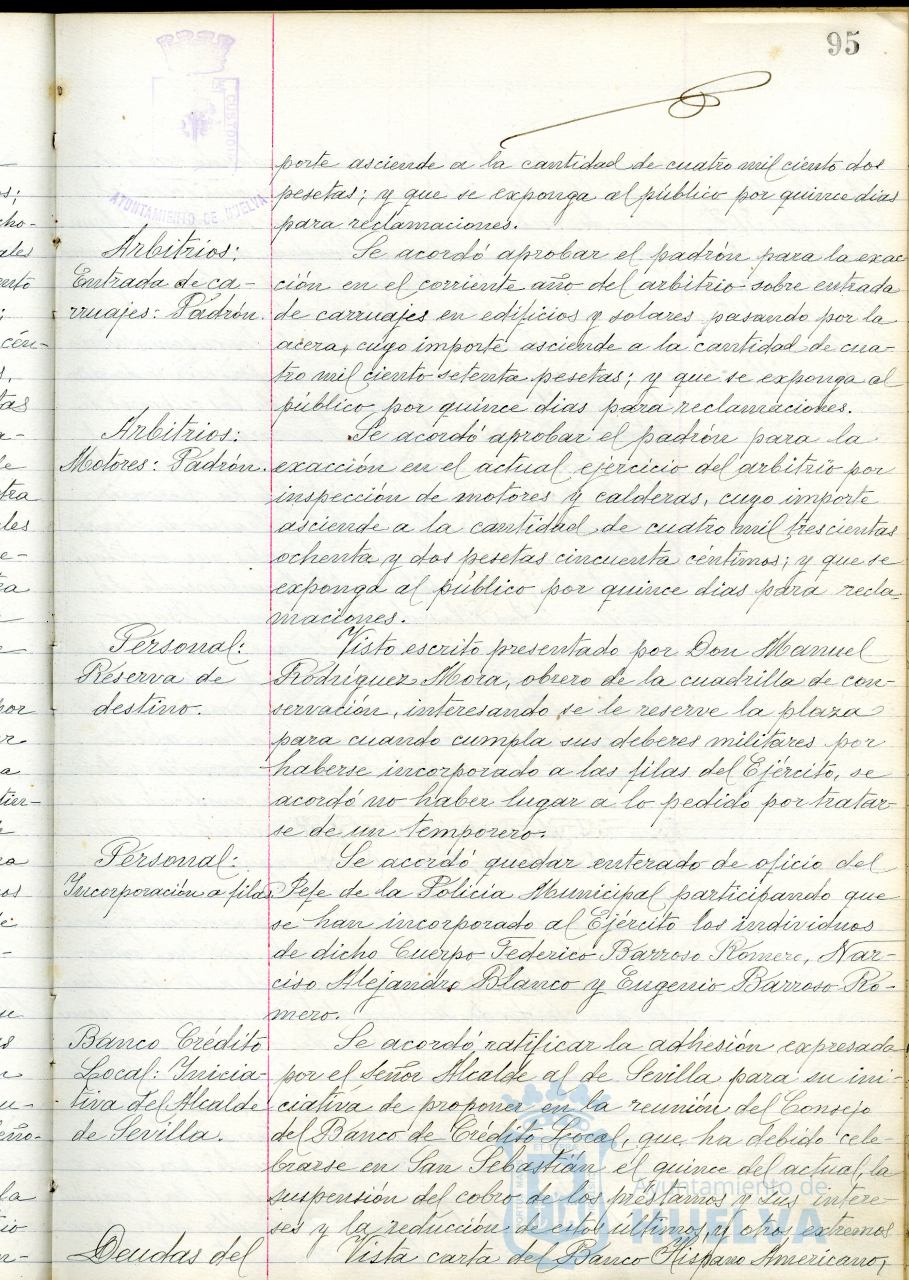 95
CUSTODIO
AYUNTAMIENTO DE HUELVA
porte asciende a la cantidad de cuatro mil ciento dos
pesetas; y que se exponga al público por quince dias
para reclamaciones.
Arbitrios:
Entrada de ca-
rruajes: Padrón.
Se acordó aprobar el padrón para la exac
ción en el corriente año del arbitrio sobre entrada
de carruajes en edificios y solares pasando por la
acera, cuyo importe asciende a la cantidad de cua-
tro mil ciento setenta pesetas; y que se exponga al
público por quince dias para reclamaciones.
Arbitrios:
Motores: Padrón.
Se acordó aprobar el padrón para la
exacción en el actual ejercicio del arbitrio por
inspección de motores y calderas, cuyo importe
asciende a la cantidad de cuatro mil trescientas
ochenta y dos pesetas cincuenta céntimos; y que se
exponga al público por quince dias para recla-
maciones.
Personal:
Reserva de
destino.
Visto escrito presentado por Don Manuel
Rodríguez Mora, obrero de la cuadrilla de con-
servación, interesando se le reserve la plaza
para cuando cumpla sus deberes militares por
haberse incorporado a las filas del Ejército, se
acordó no haber lugar a lo pedido por tratar-
se de un temporero.
Personal:
Incorporación a filas
Se acordó quedar enterado de oficio del
Jefe de la Policia Municipal participando que
se han incorporado al Ejército los individuos
de dicho Cuerpo Federico Barroso Romero, Nar-
ciso Alejandro Blanco y Eugenio Barroso Ro-
mero.
Banco Crédito
Local: Inicia-
tiva del Alcalde
de Sevilla.
Se acordó ratificar la adhesión expresada
por el Señor Alcalde al de Sevilla para su ini-
ciativa de proponer en la reunión del Consejo
del Banco de Crédito Local, que ha debido cele-
brarse en San Sebastián el quince del actual, la
suspensión del cobro de los préstamos y sus intere-
ses y la reducción de estos últimos, y otros extremos
Deudas del
Vista carta del Banco Hispano Americano,
Ayuntamiento de
HUELVA